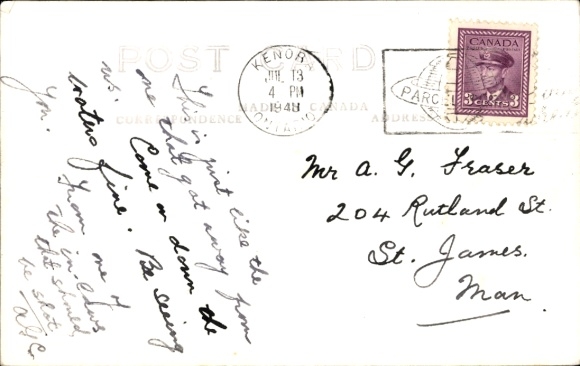 POST CARD
KENORA
JUL 13
4 PM
1948
ONTARIO
CANADA
3 CENTS 3
PARC
MADE IN CANADA
CORRESPONDENCE
ADDRESS
This is just like the
one that got away from
us. Come on down the
water's fine. Be seeing
You.
From one of
the in-laws
that should
be shot
Mr A. G. Fraser
204 Rutland St.
St. James.
Man.